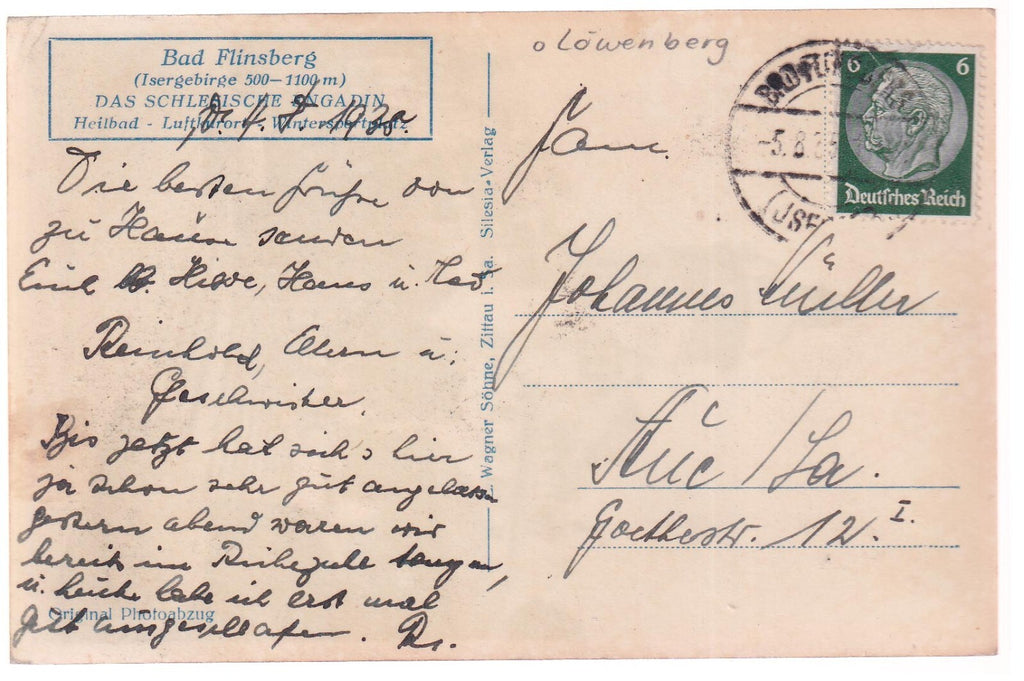 Bad Flinsberg
(Isergebirge 500–1100 m)
DAS SCHLESISCHE ENGADIN
Heilbad - Luftkurort - Wintersportplatz
Die besten Grüße von
zu Hause senden
Emil Hilde, Hans u.
Reinhold, Eltern u.
Geschwister.
Bis jetzt hat sich's hier
ja schon sehr gut angelassen
gestern abend waren wir
bereits im tanzen,
u. heute habe ich erst mal
gut ausgeschlafen.
Original Photoabzug
Wagner Söhne, Zittau i. Sa. Silesia-Verlag
o Löwenberg
6 6
Deutsches Reich
-5.8.
Fam.
Johannes Müller
Aue /Sa.
Goethestr. 12 I.